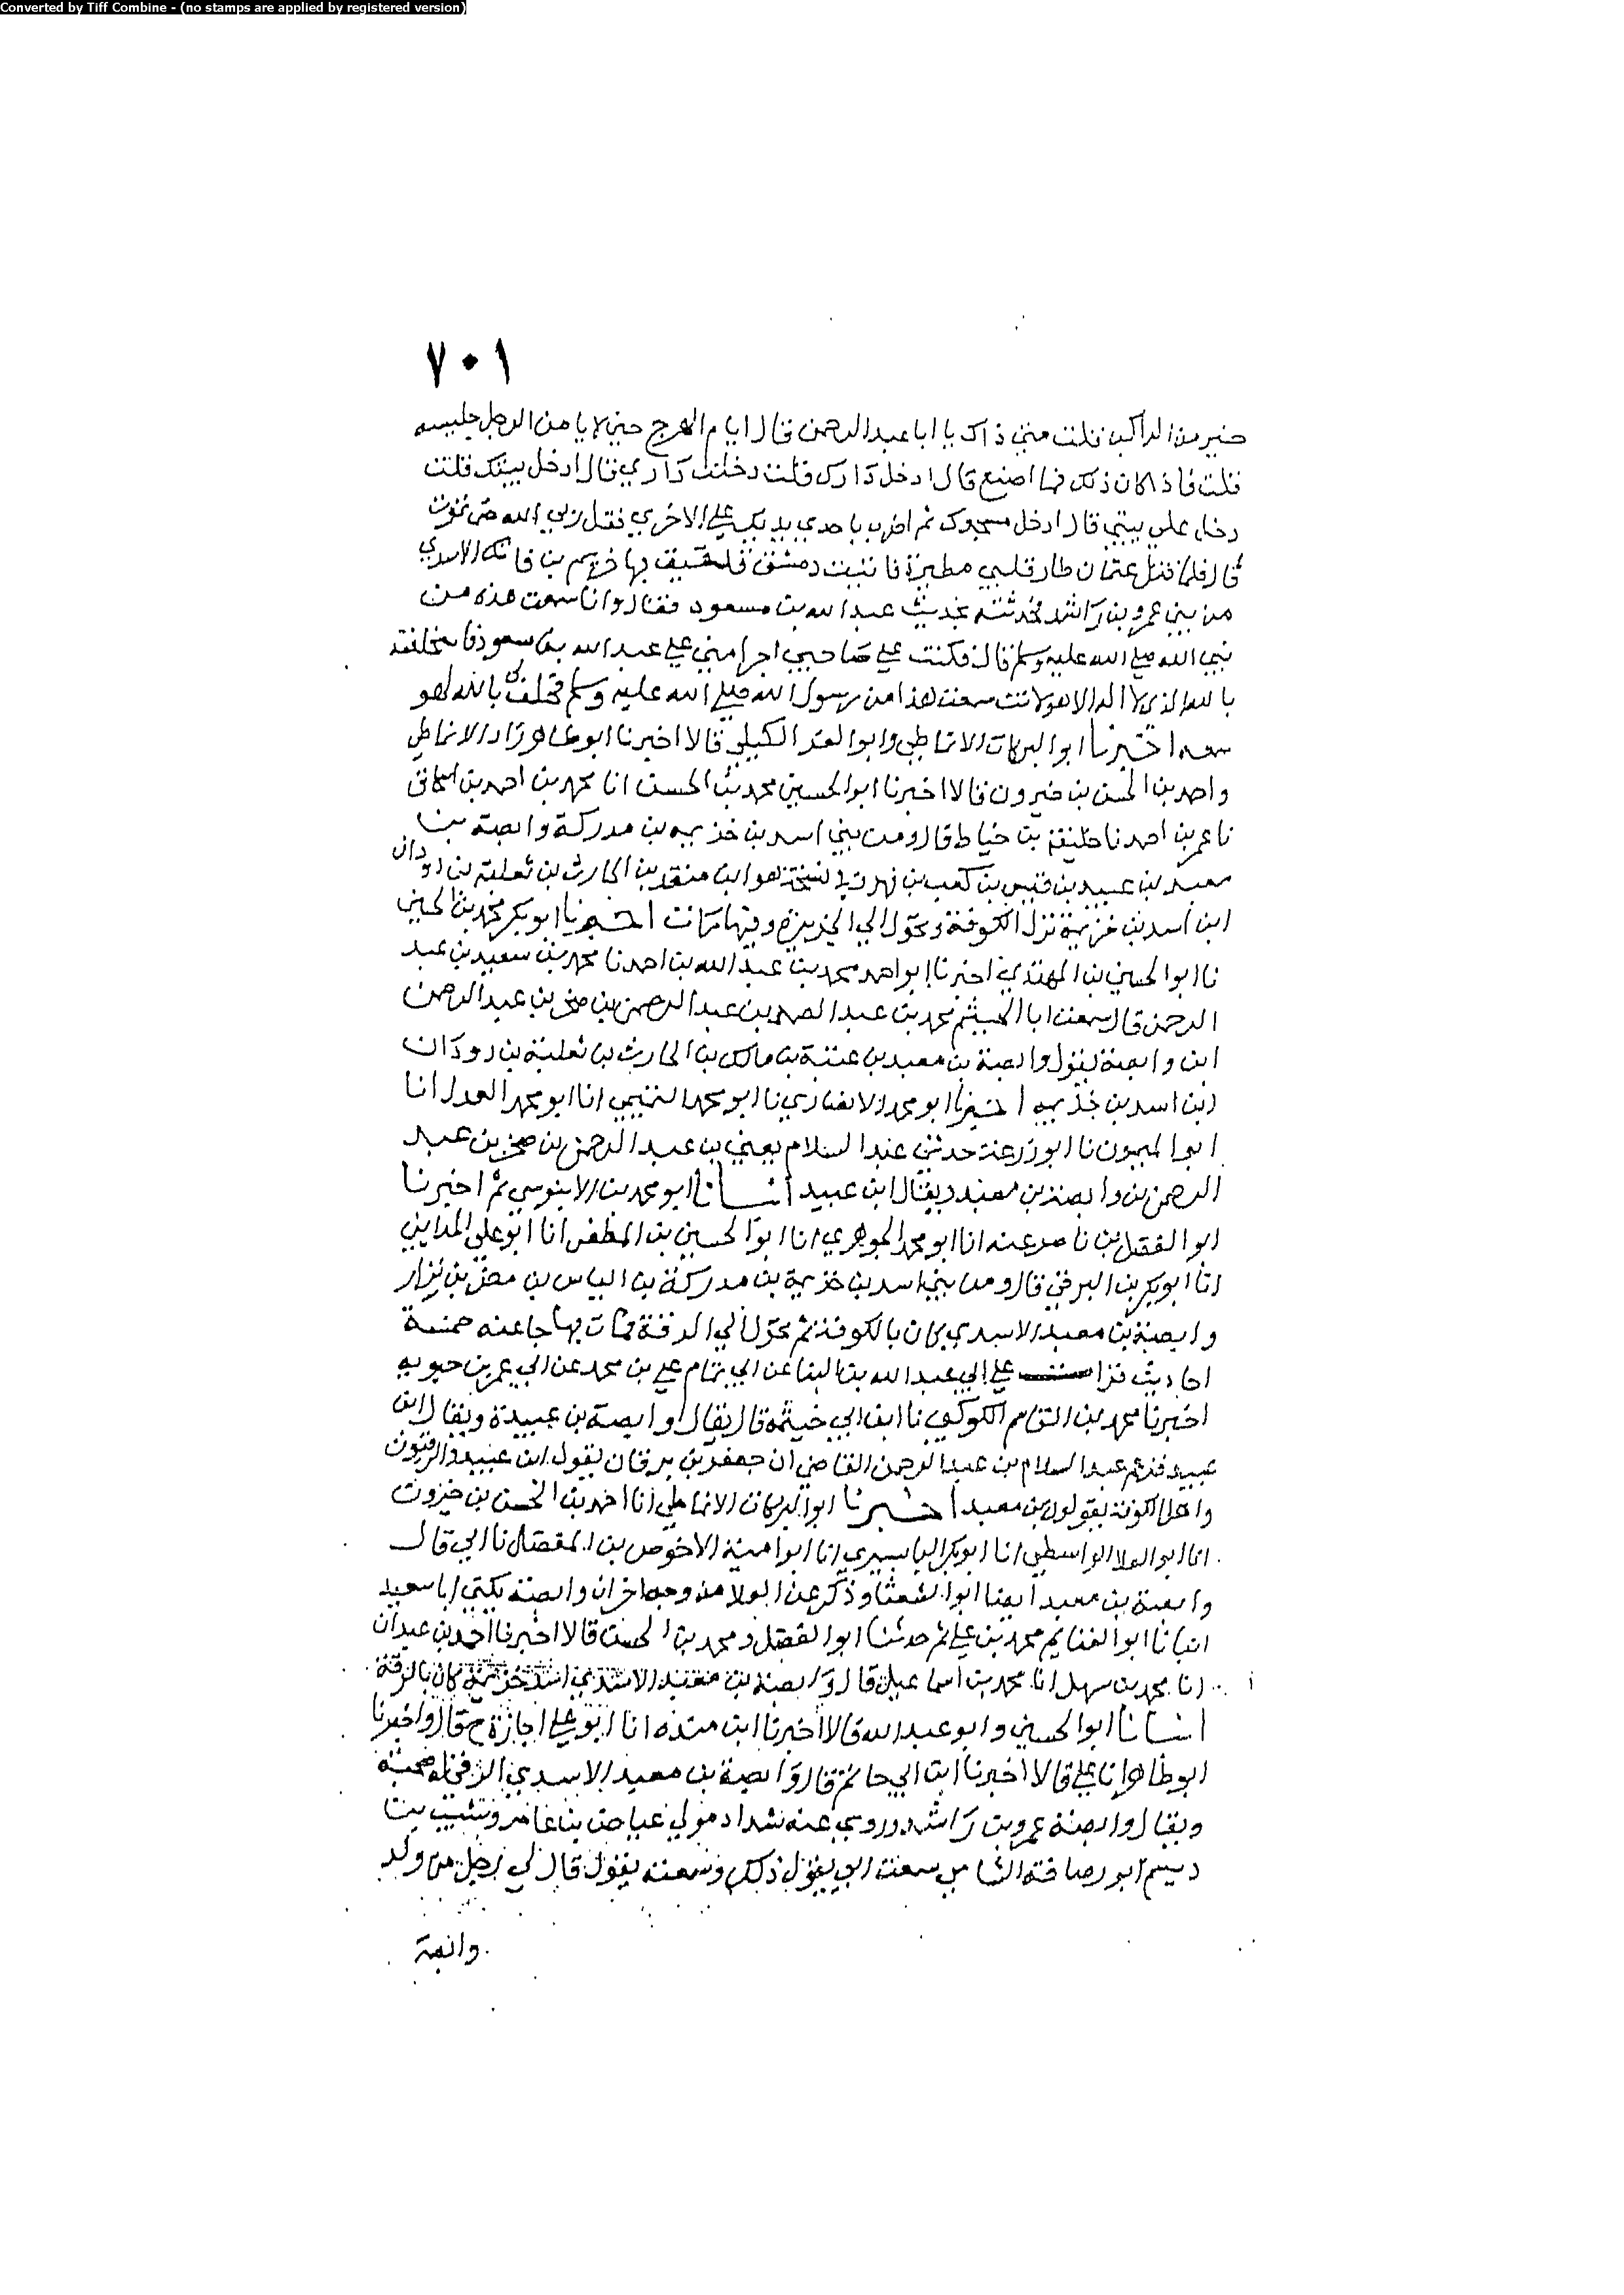 Converted by Tiff Combine - (no stamps are applied by registered version)
٧٠١
خير من الراكب قلت متي ذاك يا ابا عبد الرحمن قال ايام الهرج حين لا يامن الرجل جليسه
قلت فاذا كان ذلك فما اصنع قال ادخل دارك قلت دخلت داري قال ادخل بيتك قلت
دخل علي بيتي قال ادخل مسجدك ثم اضرب باحدي يديك علي الاخري فقل ربي الله حتي تموت
قال فلما قتل عثمان طار قلبي مطيرة فاتيت دمشق فلقيت بها خريم بن فاتك الاسدي
من بني عمرو بن راشد فحدثته بحديث عبد الله بن مسعود فقال وانا سمعت هذه من
نبي الله صلي الله عليه وسلم قال فكنت علي صاحبي اجرا مني علي عبد الله بن مسعود فاستحلفته
بالله الذي لا اله الا هو لانت سمعت هذا من رسول الله صلي الله عليه وسلم فحلف بالله لهو
سمعه اخبرنا ابو البركات الانماطي وابو العز الكيلي قالا اخبرنا ابو طاهر زاد الانماطي
واحمد بن الحسن بن خيرون قالا اخبرنا ابو الحسين محمد بن الحسن انا محمد بن احمد بن اسحاق
نا عمر بن احمد نا خليفة بن خياط قال ومن بني اسد بن خزيمه بن مدركة وابصة بن
معبد بن عبيد بن قيس بن كعب بن نهد في نسخة هو ابن منقذ بن الحارث بن ثعلبة بن دودان
ابن اسد بن خزيمة نزل الكوفة وتحول الي الجزيرة وبها مات اخبرنا ابو بكر محمد بن الحسين
نا ابو الحسين بن المهتدي اخبرنا ابو احمد محمد بن عبد الله بن احمد نا محمد بن سعيد بن عبد
الرحمن قال سمعت ابا الهيثم محمد بن عبد الصمد بن عبد الرحمن بن صخر بن عبد الرحمن
ابن وابصة يقول وابصة بن معبد بن عتبة بن مالك بن الحارث بن ثعلبة بن دودان
ابن اسد بن خذيمه اخبرنا ابو محمد الانصاري نا ابو محمد التميمي انا ابو محمد العدل انا
ابو الميمون نا ابو زرعة حدثني عبد السلام يعني بن عبد الرحمن بن صخر بن عبد
الرحمن بن وابصة بن معبد ويقال ابن عبيد انبانا ابو محمد بن الابنوسي ثم اخبرنا
ابو الفضل بن ناصر عنه انا ابو محمد الجوهري انا ابو الحسين بن المظفر انا ابو علي المدايني
انا ابو بكر بن البرقي قال ومن بني اسد بن خزيمة بن مدركة بن الياس بن مضر بن نزار
وابصة بن معبد الاسدي كان بالكوفة ثم تحول الي الرقة فمات بها جا عنه خمسة
احاديث قرات علي ابي عبد الله بن البنا عن ابي تمام علي بن محمد عن ابي عمر بن حيويه
اخبرنا محمد بن القاسم الكوكبي نا ابن ابي خيثمة قال يقال وابصة بن عبيدة ويقال ابن
عبيد فزعم عبد السلام بن عبد الرحمن القاضي ان جعفر بن برقان يقول ابن عبيدة والرقيون
واهل الكوفة يقولون بن معبد اخبرنا ابو البركات الانماطي انا احمد بن الحسن بن خيرون
انا ابو العلا الواسطي انا ابو بكر البابسيري انا ابو امية الاحوص بن المفضل نا ابي قال
وابصة بن معبد ايضا ابو الشعثا وذكر عن ابو العلا من وجه اخر ان وابصة يكني ابا سعيد
انبانا ابو الغنايم محمد بن علي ثم حدثنا ابو الفضل ومحمد بن الحسن قالا اخبرنا احمد بن عبدان
انا محمد بن سهل انا محمد بن اسماعيل قال وابصة بن معبد الاسدي اسد خزيمة كان بالرقة
انبانا ابو الحسين وابو عبد الله قالا اخبرنا ابن منده انا ابو علي اجازة ح قال واخبرنا
ابو طاهر انا علي قالا اخبرنا ابن ابي حاتم قال وابصة بن معبد الاسدي الرقي له صحبة
ويقال وابصة عمرو بن راشد وروي عنه شداد مولي عياض بن عامر ونسيب بن
ديسم ابو رصافة الشامي سمعت ابي يقول ذلك وسمعته يقول قال لي رجل من ولد
وابصة